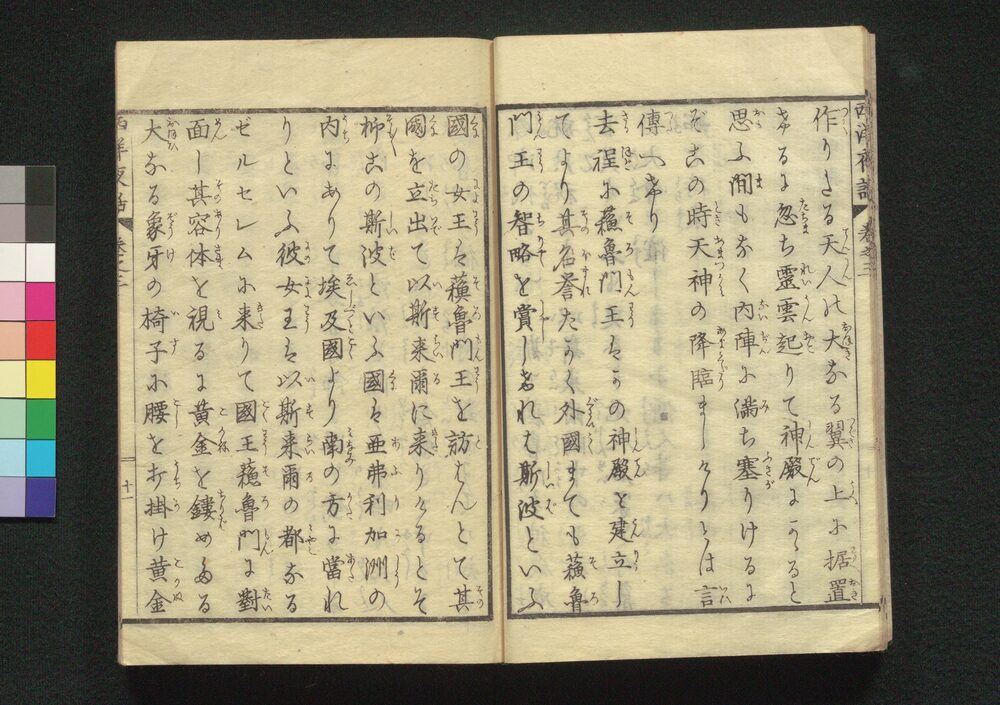 西洋夜話 巻之三
作りたる天人の大なる翼の上に据置
けるに忽ち靈雲起りて神殿にかゝると
思ふ間もなく内陣に満ち塞りけるに
ぞこの時天神の降臨ましけりとは言
傳へけり
去程に蘓魯門王はかの神殿を建立し
てより其名誉たかく外國までも蘓魯
門王の智略を賞しあれば斯波といふ
國の女王は蘓魯門王を訪はんとて其
國を立出て以斯来爾に来りけるとぞ
抑この斯波といふ國は亜弗利加洲の
内にありて埃及國より南の方に當れ
りといふ彼女王は以斯来爾の都なる
ゼルセレムに来りて國王蘓魯門に對
面し其容体を視るに黄金を鏤めたる
大なる象牙の椅子に腰を打掛け黄金
西洋夜話 巻之三
十一